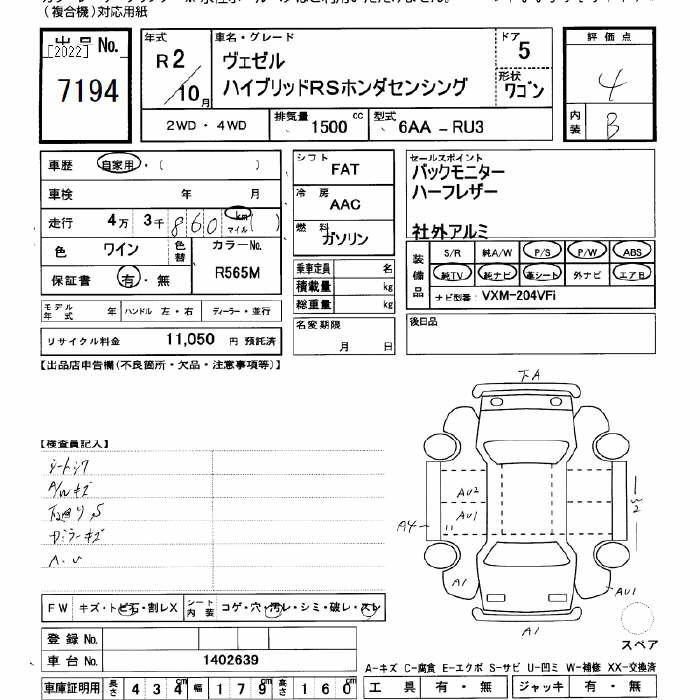 (複合機)対応用紙
出品No.
[2022]
7194
年式
R2/10月
車名・グレード
ヴェゼル
ハイブリッドRSホンダセンシング
ドア
5
形状
ワゴン
評価点
4
内装
B
2WD・4WD
排気量 1500 cc
型式 6AA-RU3
車歴 自家用・( )
車検 年 月
走行 4万 3千 860 km マイル ( )
色 ワイン 色替 カラーNo.
R565M
保証書 有・無
シフト FAT
冷房 AAC
燃料 ガソリン
乗車定員 名
積載量 kg
総重量 kg
セールスポイント
バックモニター
ハーフレザー
社外アルミ
装備品
S/R 純A/W P/S P/W ABS
純TV 純ナビ 革シート 外ナビ エアB
ナビ型番: VXM-204VFi
モデル年式 年 ハンドル 左・右 ディーラー・並行
名変期限
月 日
後日品
リサイクル料金 11,050 円 預託済
【出品店申告欄(不良箇所・欠品・注意事項等)】
【検査員記入】
A/Wキズ
下廻りS
ドアミラーキズ
A.U
下A
AU2
AU1
A4
W2
A1
AU1
A1
FW キズ・トビ石・割レX シート内装 コゲ・穴・汚レ・シミ・破レ・スレ
登録No.
車台No. 1402639
スペア
A-キズ C-腐食 E-エクボ S-サビ U-凹ミ W-補修 XX-交換済
車庫証明用 長さ 434cm 幅 179cm 高さ 160cm
工具 有・無 ジャッキ 有・無